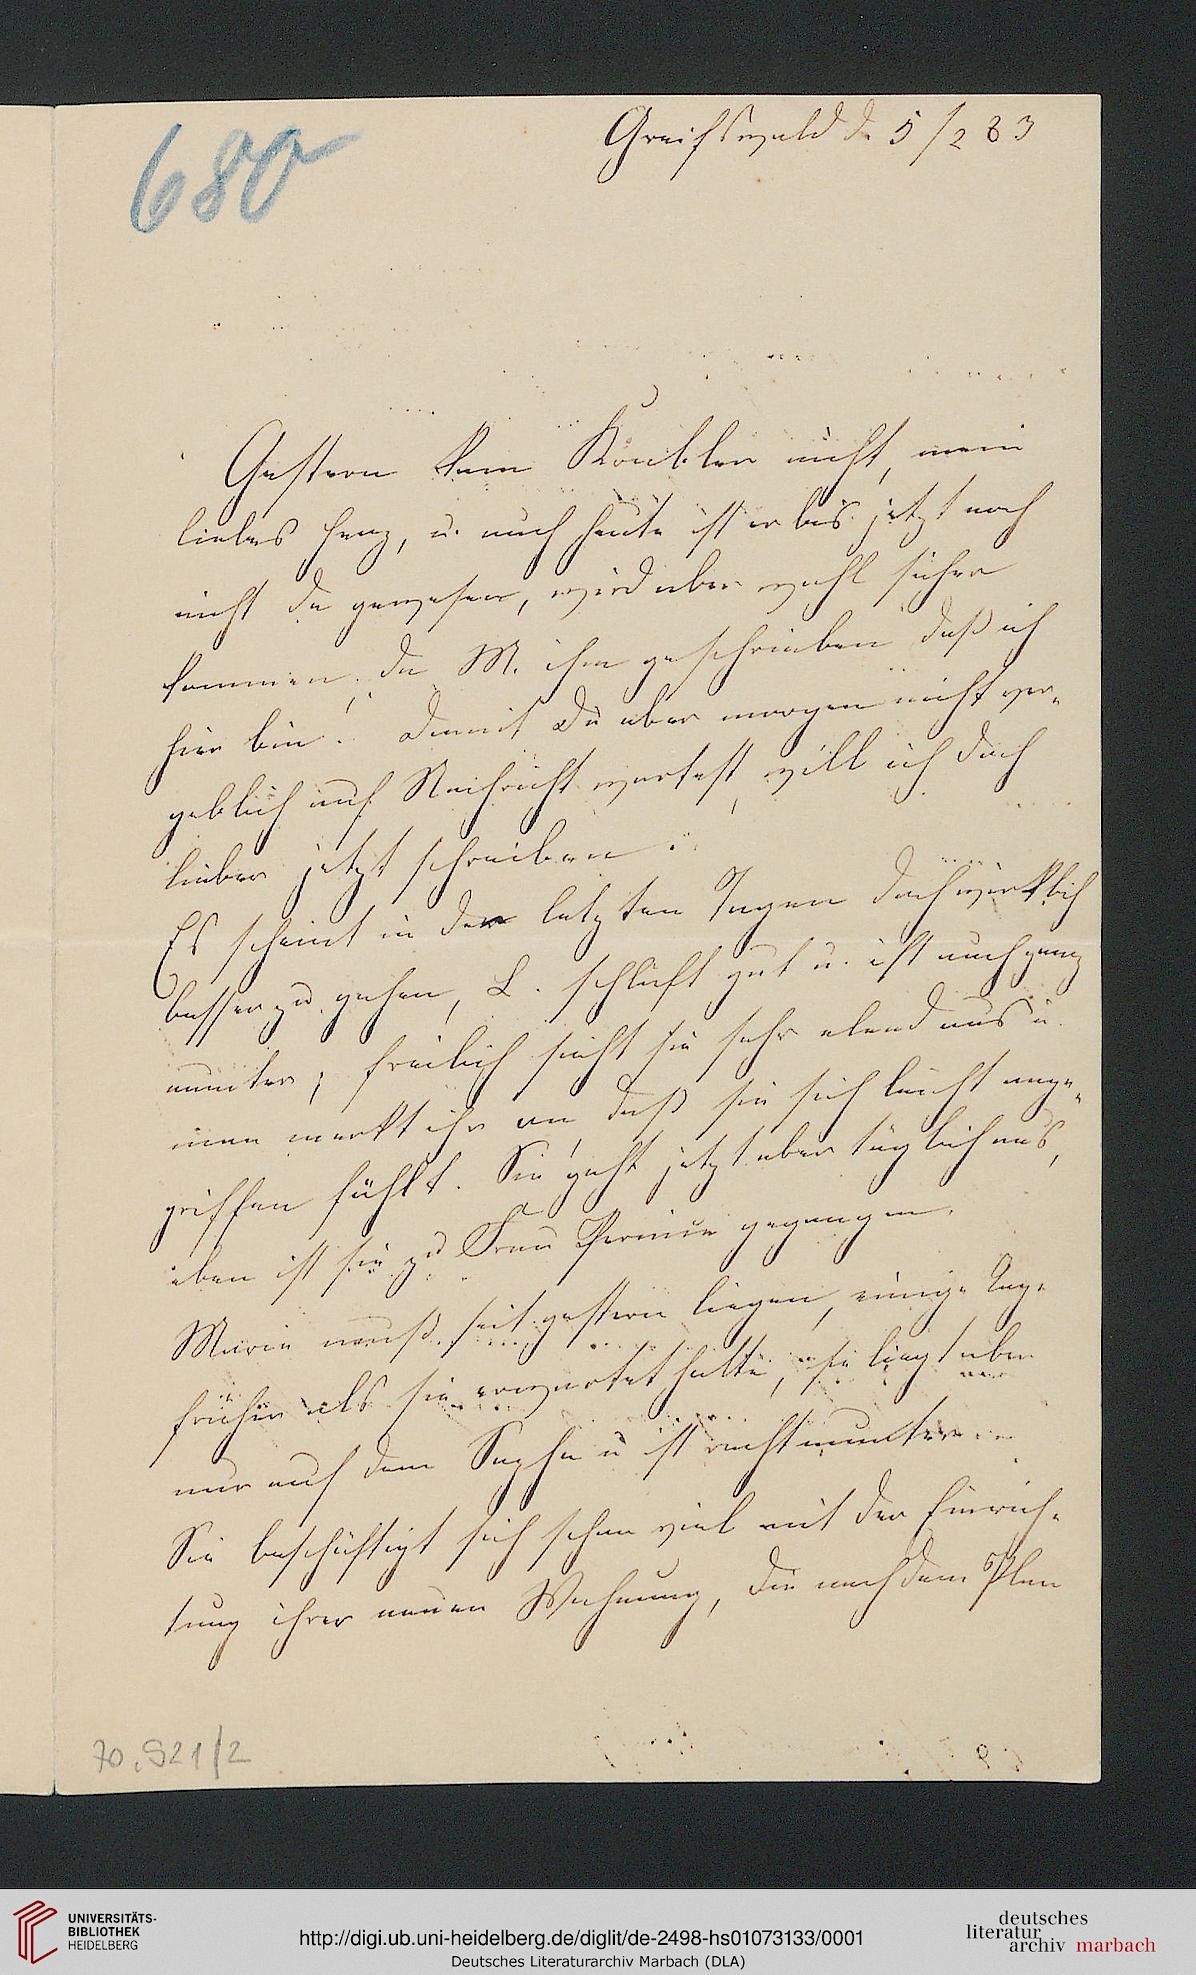 680
Greifswald d. 5/2 83
Gestern kam Könibler nicht, mein
liebes Herz, u. auch heute ist er bis jetzt noch
nicht da gewesen, wird aber wohl sicher
kommen, da M. ihm geschrieben daß ich
hier bin. Damit Du aber morgen nicht ver-
geblich auf Nachricht wartest, will ich doch
lieber jetzt schreiben.
Es scheint in den letzten Tagen doch wirklich
besser zu gehen, L. schläft gut u. ist auch ganz
munter; freilich sieht sie sehr elend aus u.
man merkt ihr an, daß sie sich leicht ange-
griffen fühlt. Sie geht jetzt aber täglich aus,
eben ist sie zu Frau gegangen.
Marie muß seit gestern liegen, einige Tage
früher als sie erwartet hatte, sie liegt aber
nur auf dem Sopha u ist recht munter
Sie beschäftigt sich schon viel mit der Einrich-
tung ihrer neuen Wohnung, die nach dem Plan
70.921/2
UNIVERSITÄTS-
BIBLIOTHEK
HEIDELBERG
http://digi.ub.uni-heidelberg.de/diglit/de-2498-hs01073133/0001
Deutsches Literaturarchiv Marbach (DLA)
deutsches
literatur
archiv marbach